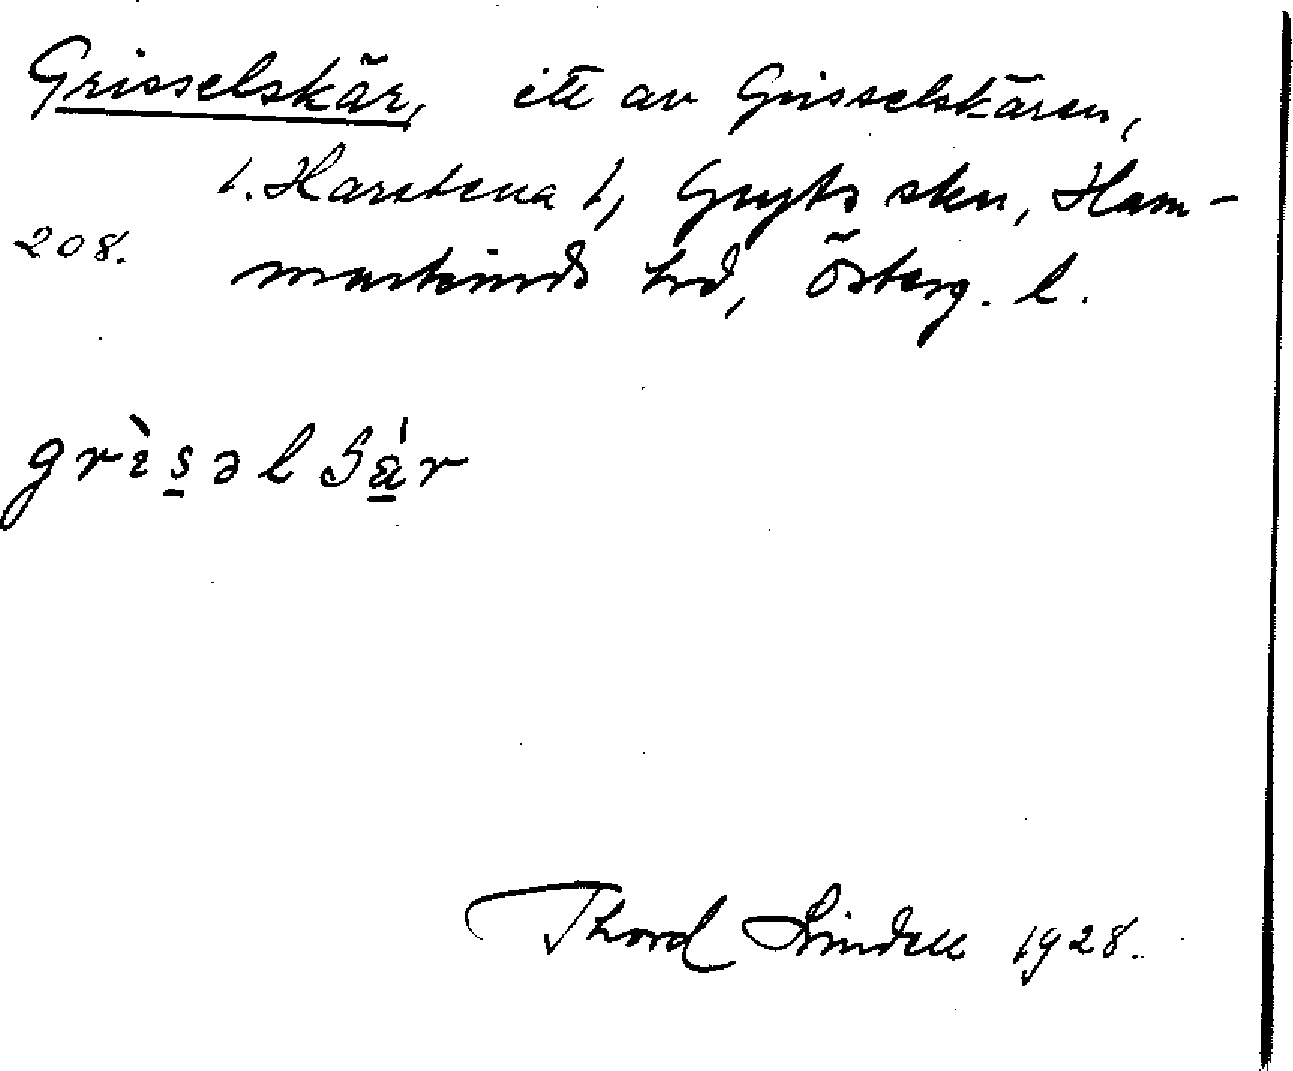 Grisselskär, ett av Grisselskären,
t. Harstena 1, Gryts skn, Ham-
208.
markinds hd, Österg. l.
grìsəlʃä́r
Thord Lindell 1928.